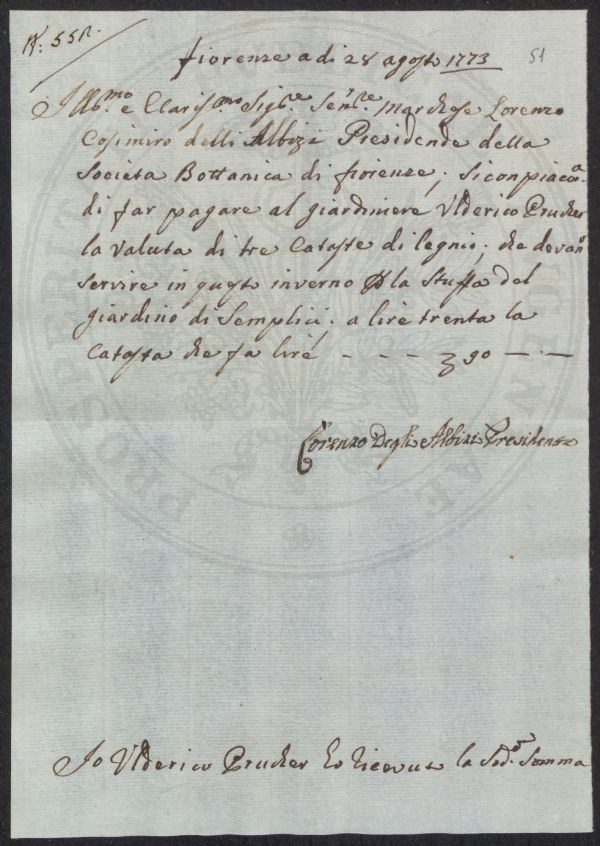 N: 55R.
51
fiorenze a di 28 agosto 1773
Illu.mo e Claris.mo Sig.re Sen.re Marchese Lorenzo
Cosimiro delli Albizi Presidende della
Societa Bottanica di fiorenze; si conpiacca
di far pagare al giardiniere Ulderico Prucker
la valuta di tre Cataste di legnio; che devan.o
servire in quest inverno per la Stuffa del
giardino di Semplici; a lire trenta la
Catasta che fa lire - - - - 90 — · —
Lorenzo Degli Albizi Presidente
Io Ulderico Prucker ho ricevuto la Sod.a Somma